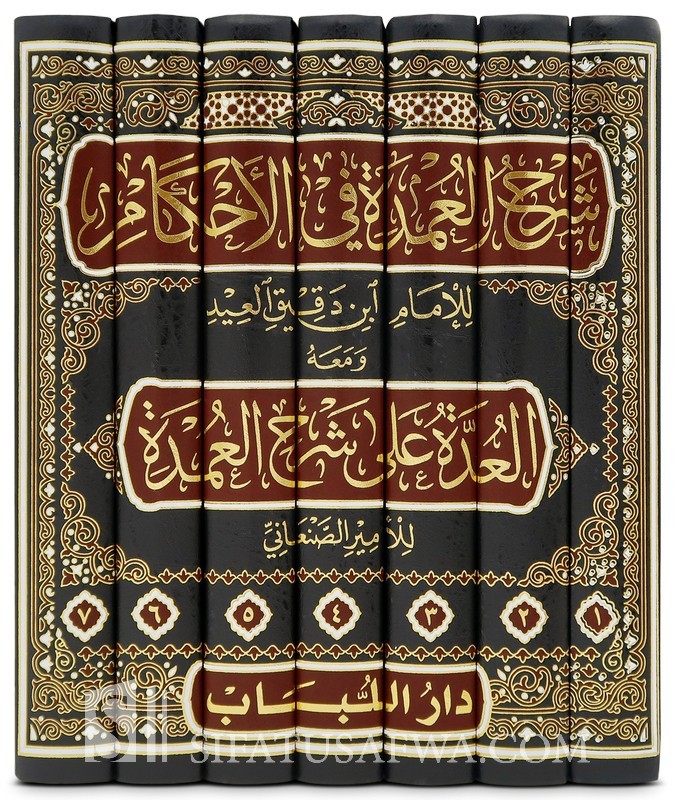 شَرْحُ العُمْدَةِ فِي الأَحْكَامِ
لِلإِمَامِ ابْنِ دَقِيقِ العِيدِ
وَمَعَهُ
العُدَّةُ عَلَى شَرْحِ العُمْدَةِ
لِلأَمِيرِ الصَّنْعَانِيِّ
١ ٢ ٣ ٤ ٥ ٦ ٧
دَارُ اللُّبَابِ
SIFATUSAFWA.COM